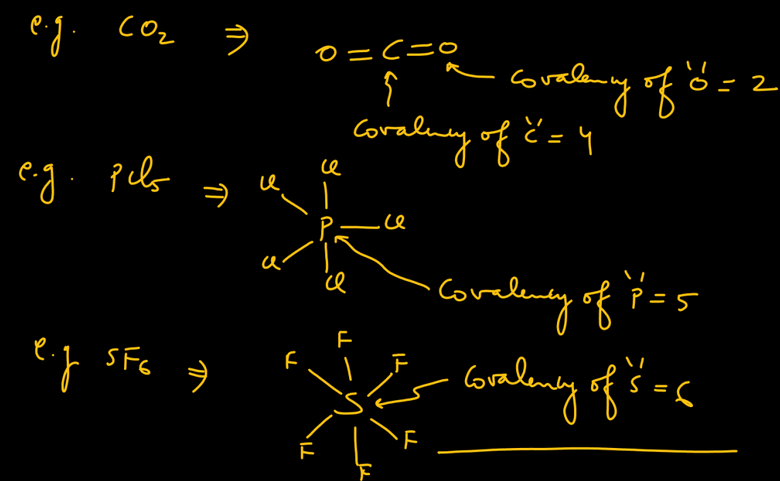 e.g. CO₂ ⇒ O=C=O
Covalency of "O" = 2
Covalency of "C" = 4
e.g. PCl₅ ⇒
Cl Cl
P Cl
Cl Cl
Covalency of "P" = 5
e.g SF₆ ⇒
F F F
S
F F F
Covalency of "S" = 6